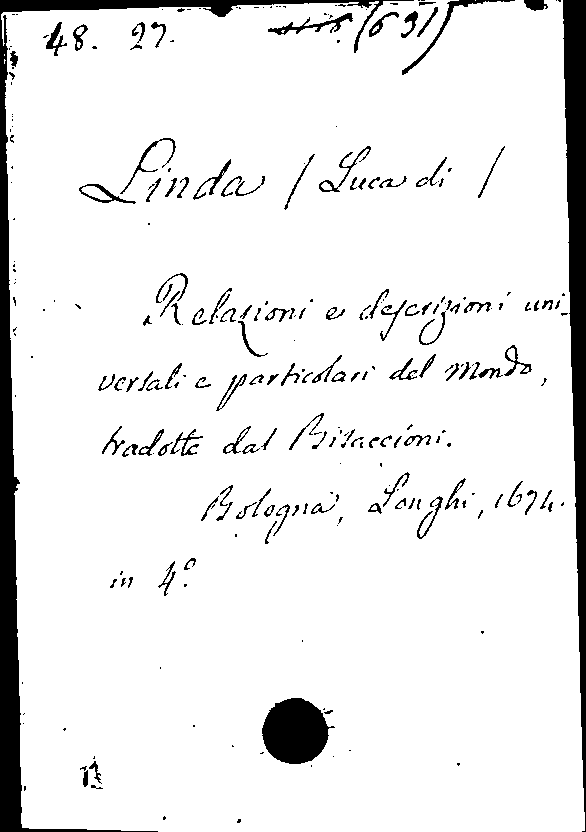 48. 27. (631)
Linda / Luca di /
Relazioni e descrizioni uni-
versali e particolari del Mondo,
tradotte dal Bisaccioni.
Bologna, Longhi, 1674.
in 4.º